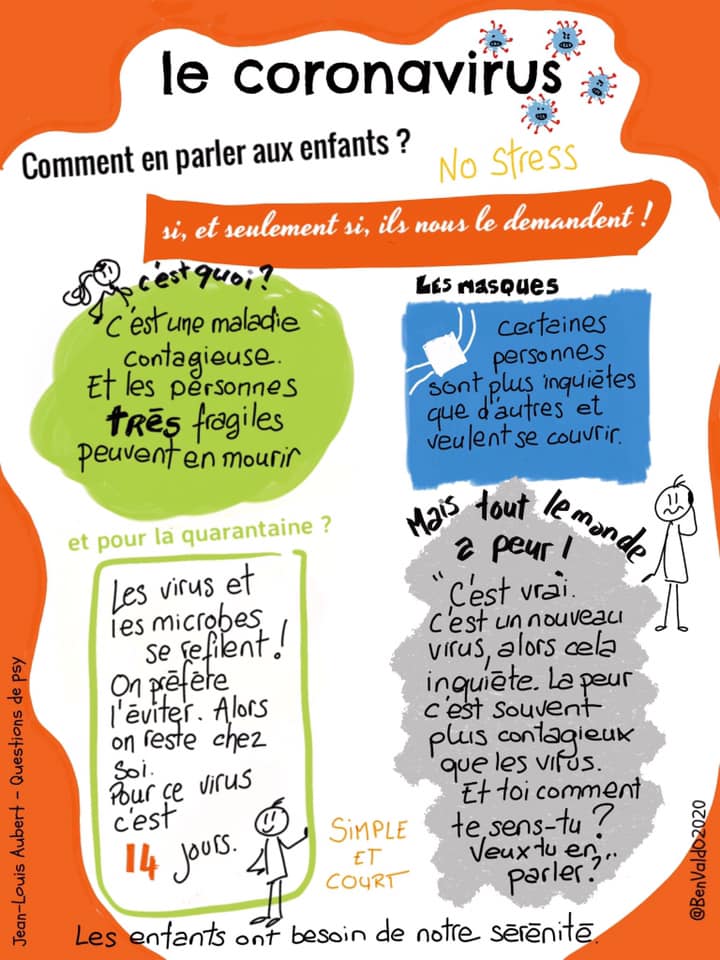 le coronavirus
Comment en parler aux enfants ?
No stress
si, et seulement si, ils nous le demandent !
c'est quoi ?
C'est une maladie
contagieuse.
Et les personnes
TRĒS fragiles
peuvent en mourir
Les masques
Certaines
personnes
sont plus inquiètes
que d'autres et
veulent se couvrir.
et pour la quarantaine ?
Les virus et
les microbes
se refilent !
On préfère
l'éviter. Alors
on reste chez
soi.
Pour ce virus
c'est
14 jours.
SiMPLE
ET
COURT
Mais tout le monde
a peur !
"C'est vrai.
C'est un nouveau
virus, alors cela
inquiète. La peur
c'est souvent
plus contagieux
que les virus.
Et toi comment
te sens-tu ?
Veux tu en
parler ?"
Les enfants ont besoin de notre sērēnitē.
Jean-Louis Aubert – Questions de psy
@BenValdO2020